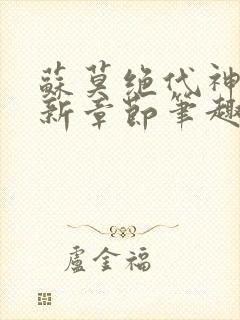 蘇莫絕代神
新章節筆趣
盧金福